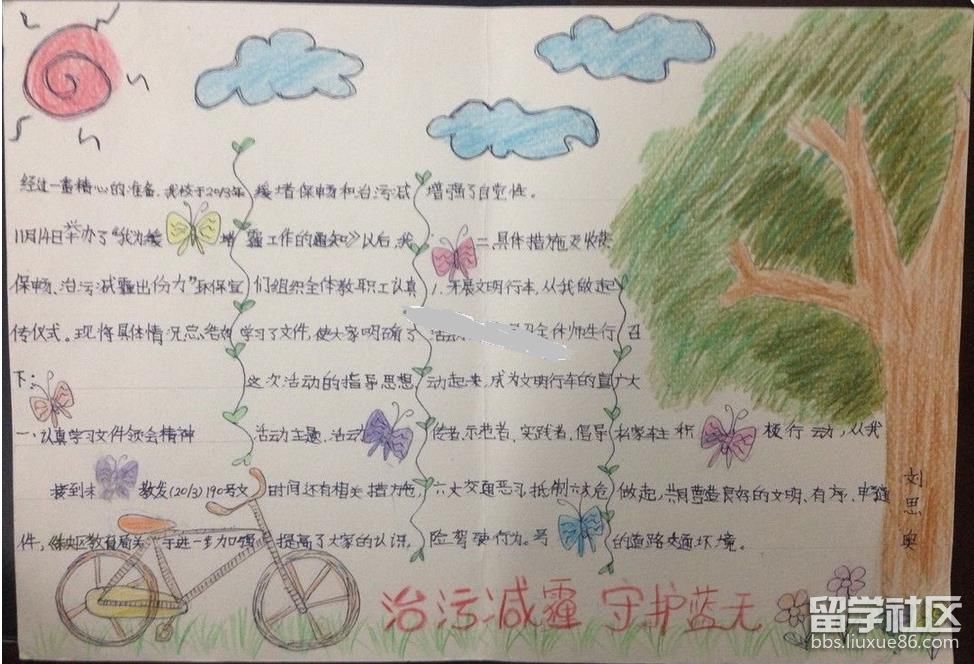 经过一番精心的准备,我校于2013年
11月14日举办了“我为缓堵
保畅、治污减霾出份力”环保宣
传仪式。现将具体情况总结如
下:
一、认真学习文件领会精神
接到未教发(2013)190号文
件,《未央区教育局关于进一步加强
缓堵保畅和治污减
霾工作的通知》以后,我
们组织全体教职工认真
学习了文件,使大家明确了
这次活动的指导思想、
活动主题、活动
时间还有相关措施,
提高了大家的认识,
增强了自觉性。
二、具体措施及收获
1、开展文明行车,从我做起
活动 全体师生行
动起来,成为文明行车的宣
传者、示范者、实践者,倡导
六大交通恶习,抵制六大危
险驾驶行为。号
召
广大
私家车主积极行动,从我
做起,共同营造良好的文明、有序、畅通
的道路交通环境。
刘思奥
治污减霾 守护蓝天
留学社区
bbs.liuxue86.com